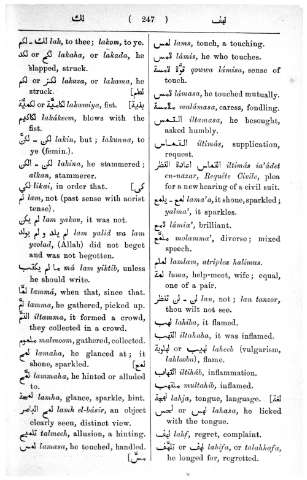 لك ( 247 ) لهف
لك - لكم lak, to thee; lakom, to ye.
لكأ or لكز lakaha, or lakada, he
slapped, struck.
لكز or لكم lakuza, or lakama, he
struck.
or lakamiya, fist.
lakâkeem, blows with the
fist.
لكن lakin, but; lakunna, to
ye (femin.).
lakina, he stammered;
alkan, stammerer.
likai, in order that. [كي
لم lam, (not past sense with aorist
tense).
لم يكن lam yakun, it was not.
لم يلد ولم يولد lam yalid wa lam
yoolad, (Allah) did not beget
and was not begotten.
ما لم يكتب má lam yiktib, unless
he should write.
لما lammá, when that, since that.
لم lamma, he gathered, picked up.
التم iltamma, it formed a crowd,
they collected in a crowd.
ملموم malmoom, gathered, collected.
لمح lamaha, he glanced at; it
shone, sparkled. [لمع
لمح lammaha, he hinted or alluded
to.
لمحة lamha, glance, sparkle, hint.
لمح الباصر lamh el-básir, an object
clearly seen, distinct view.
تلميح talmeeh, allusion, a hinting.
لمس lamasa, he touched, handled.
لمس lams, touch, a touching.
لامس lámis, he who touches.
قوة لامسة qowwa lámisa, sense of
touch.
لامس lámasa, he touched mutually.
ملامسة malámasa, caress, fondling.
التمس iltamasa, he besought,
asked humbly.
التماس iltimás, supplication,
request.
iltimás ia'ádet
en-nazar, Requête Civile, plea
for a new hearing of a civil suit.
لمع - يلمع lama'a, it shone, sparkled;
yalma', it sparkles.
لامع lámia', brilliant.
ملمع molamma', diverse; mixed
speech.
atriplex halimus.
لمة luma, helpmeet, wife; equal,
one of a pair.
لن - لن تنظر lan, not; lan tanzor,
thou wilt not see.
لهب lahiba, it flamed.
التهب iltahaba, it was inflamed.
or laheeb (vulgarism,
lahlooba), flame.
التهاب iltiháb, inflammation.
ملتهب multahib, inflamed.
لهجة lahja, tongue, language. [لغة
or lahasa, he licked
with the tongue.
لهف lahf, regret, complaint.
لهف or تلهف lahifa, or talahhafa,
he longed for, regretted.